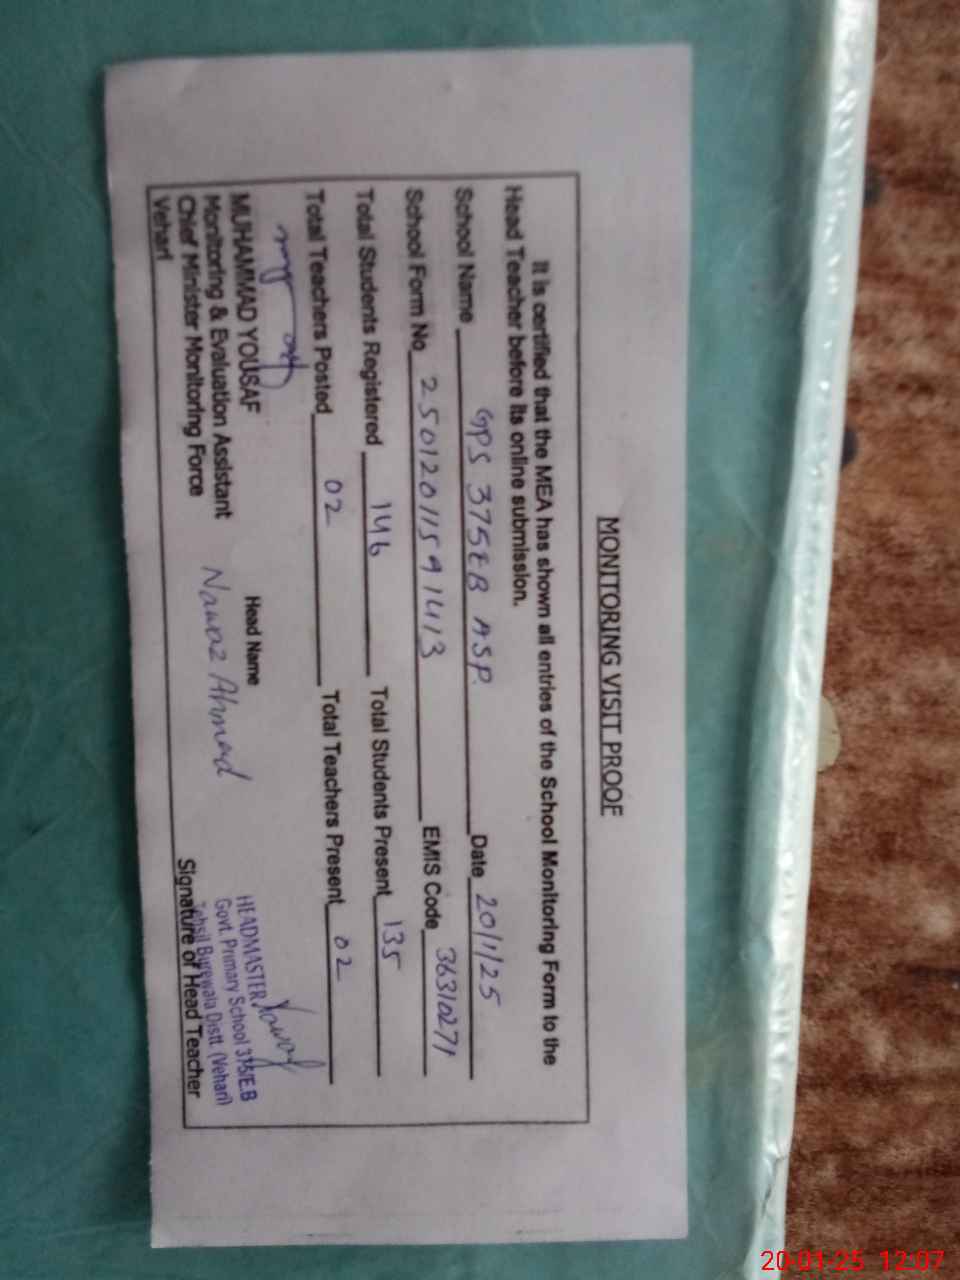 MONITORING VISIT PROOF
It is certified that the MEA has shown all entries of the School Monitoring Form to the
Head Teacher before its online submission.
School Name GPS 375EB ASP. Date 20/1/25
School Form No 2501201159 1413 EMIS Code 36310271
Total Students Registered 146 Total Students Present 135
Total Teachers Posted 02 Total Teachers Present 02
MUHAMMAD YOUSAF
Monitoring & Evaluation Assistant
Chief Minister Monitoring Force
Vehari
Head Name
Nawaz Ahmad
HEADMASTER
Govt. Primary School 375/E.B
Tehsil Burewala Distt. (Vehari)
Signature of Head Teacher
20-01-25 12:07